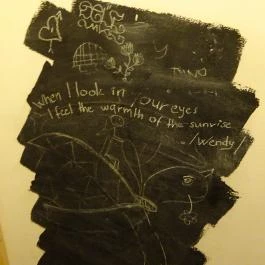 When I look in your eyes
I feel the warmth of the sunrise
/Wendy/